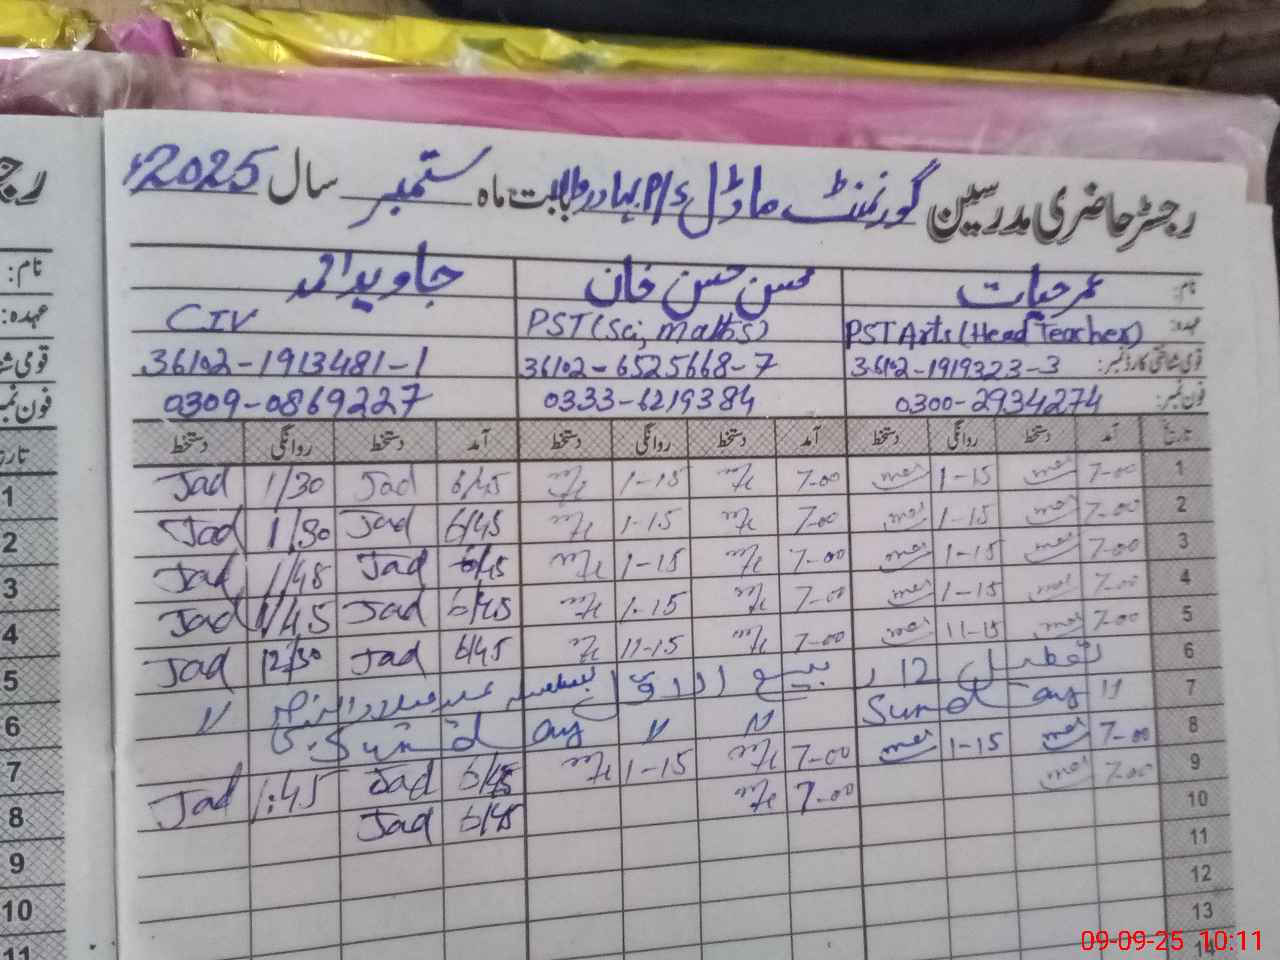 رجسٹر حاضری مدرسین گورنمنٹ ماڈل P/S بہادر بابت ماہ ستمبر سال 2025ء
نام: عمر حیات محسن حسن خان جاوید احمد
عہدہ: PST Arts (Head Teacher) PST (Sci, Maths) CIV
قومی شناختی کارڈ نمبر: 36102-1919323-3 36102-6525668-7 36102-1913481-1
فون نمبر: 0300-2934274 0333-6219384 0309-0869227
تاریخ آمد دستخط روانگی دستخط آمد دستخط روانگی دستخط آمد دستخط روانگی دستخط
1 7-00 1-15 7-00 1-15 6/45 Jad 1/30 Jad
2 7-00 1-15 7-00 1-15 6/45 Jad 1/30 Jad
3 7-00 1-15 7-00 1-15 6/45 Jad 1/45 Jad
4 7-00 1-15 7-00 1-15 6/45 Jad 1/45 Jad
5 7-00 11-15 7-00 11-15 6/45 Jad 12/30 Jad
6 تعطیل 12 ربیع الاول بسلسلہ عید میلاد النبی "
7 Sunday " " " Sunday
8 7-00 1-15 7-00 1-15 6/45 Jad 1:45 Jad
9 7-00 7-00 6/45 Jad
10
11
12
13
14
رجـ
نام:
عہدہ:
قومی شنا
فون نمبـ
تاریـ
1
2
3
4
5
6
7
8
9
10
11
09-09-25 10:11